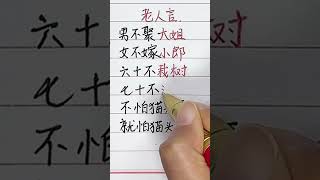 老人言
男不聚大姐
女不嫁小郎
六十不栽树
七十不
不怕猫
就怕猫头
六十
七
不
就
对